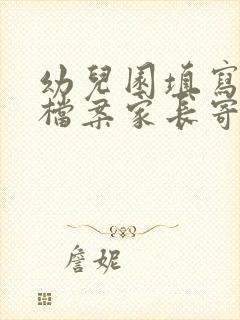 幼兒園填寫
檔案家長寄
詹妮